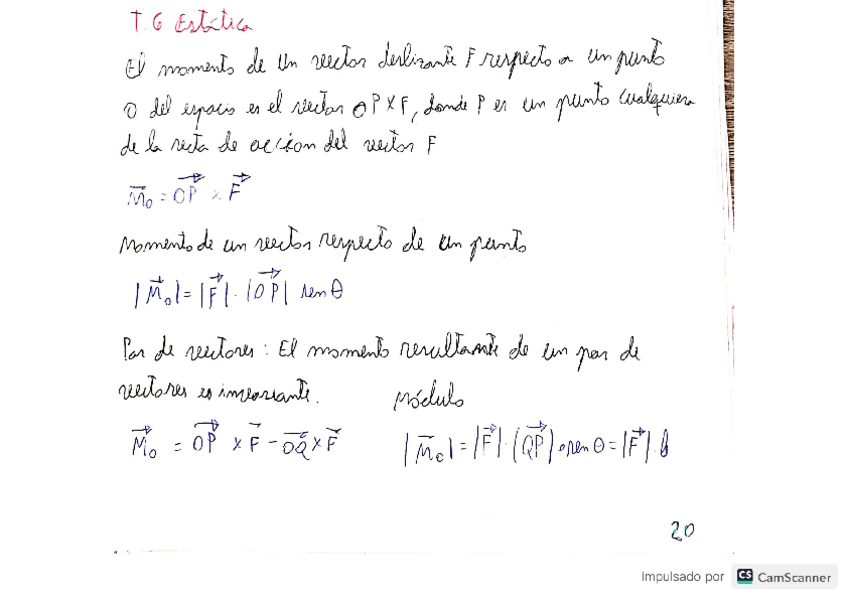 T.6 Estática
El momento de un vector deslizante F respecto a un punto
O del espacio es el vector OP×F, donde P es un punto cualquiera
de la recta de acción del vector F
M₀ = OP × F
Momento de un vector respecto de un punto
|M₀| = |F| · |OP| sen θ
Par de vectores: El momento resultante de un par de
vectores es invariante. Módulo
M₀ = OP × F - OQ × F |M₀| = |F| · |QP| · sen θ = |F| · b
20
Impulsado por CS CamScanner